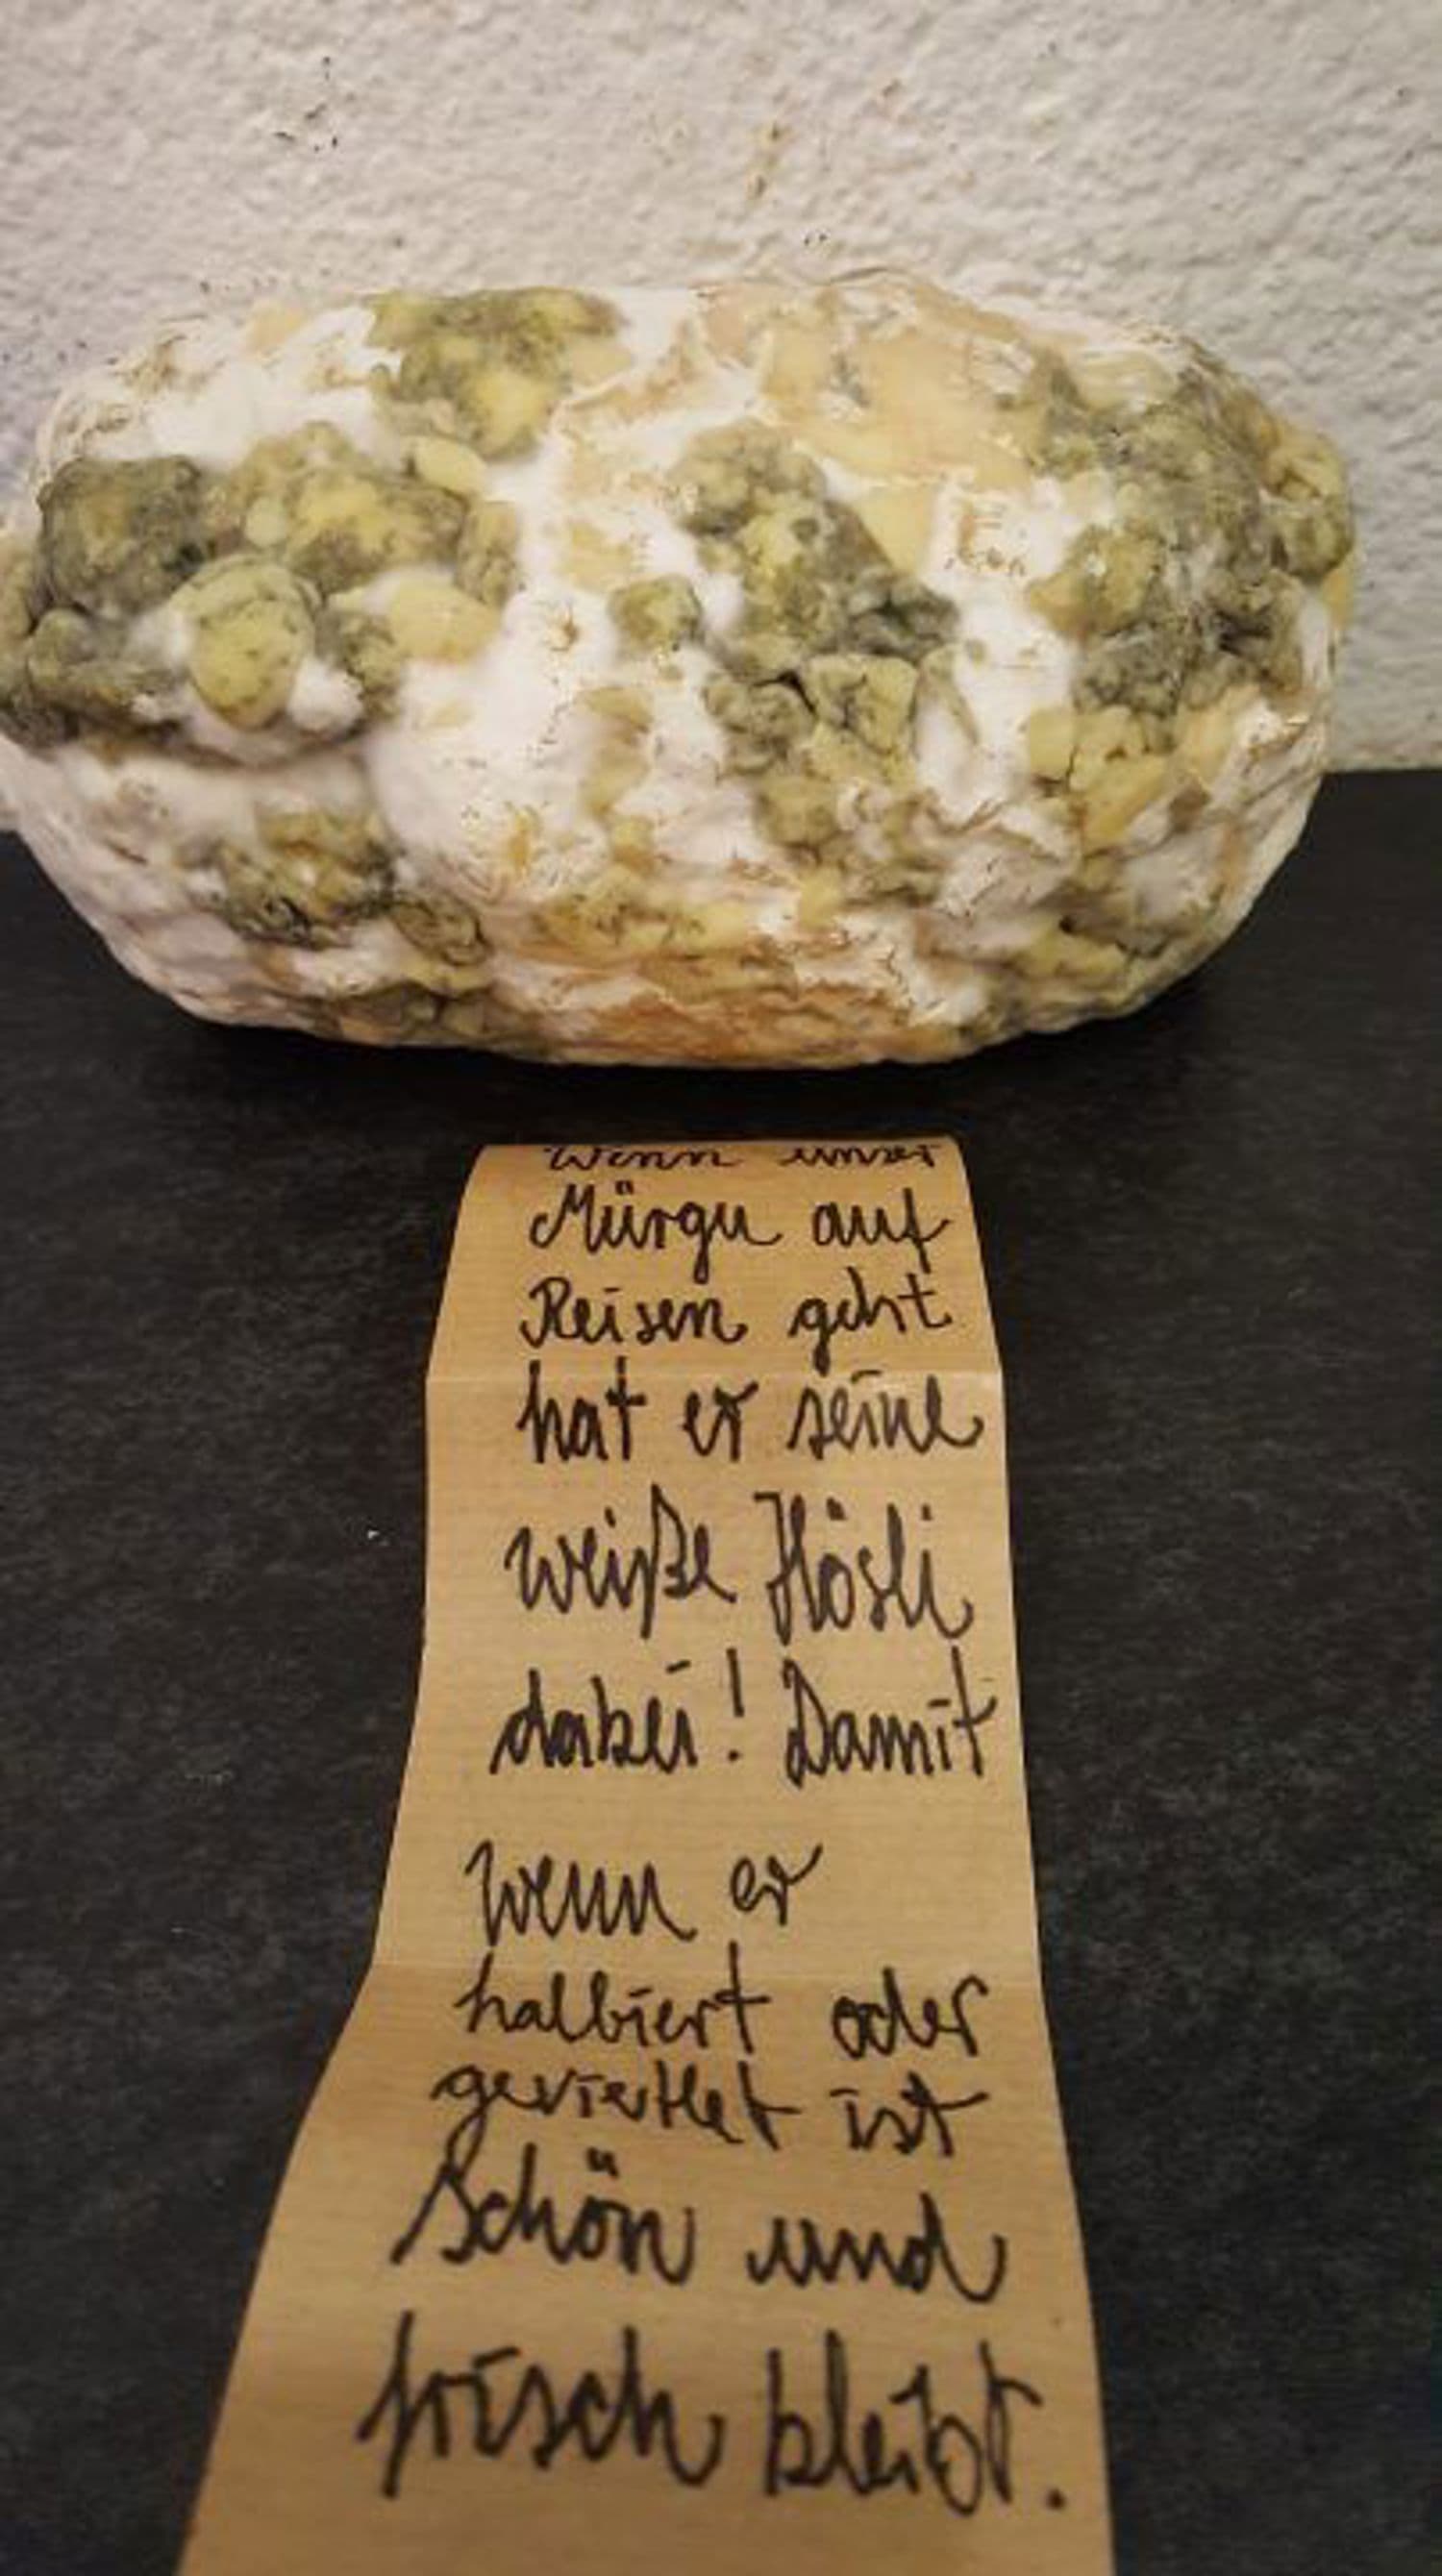 Wenn unser
Mürgu auf
Reisen geht
hat er seine
weiße Hösli
dabei! Damit
wenn er
halbiert oder
geviertlet ist
schön und
frisch bleibt.